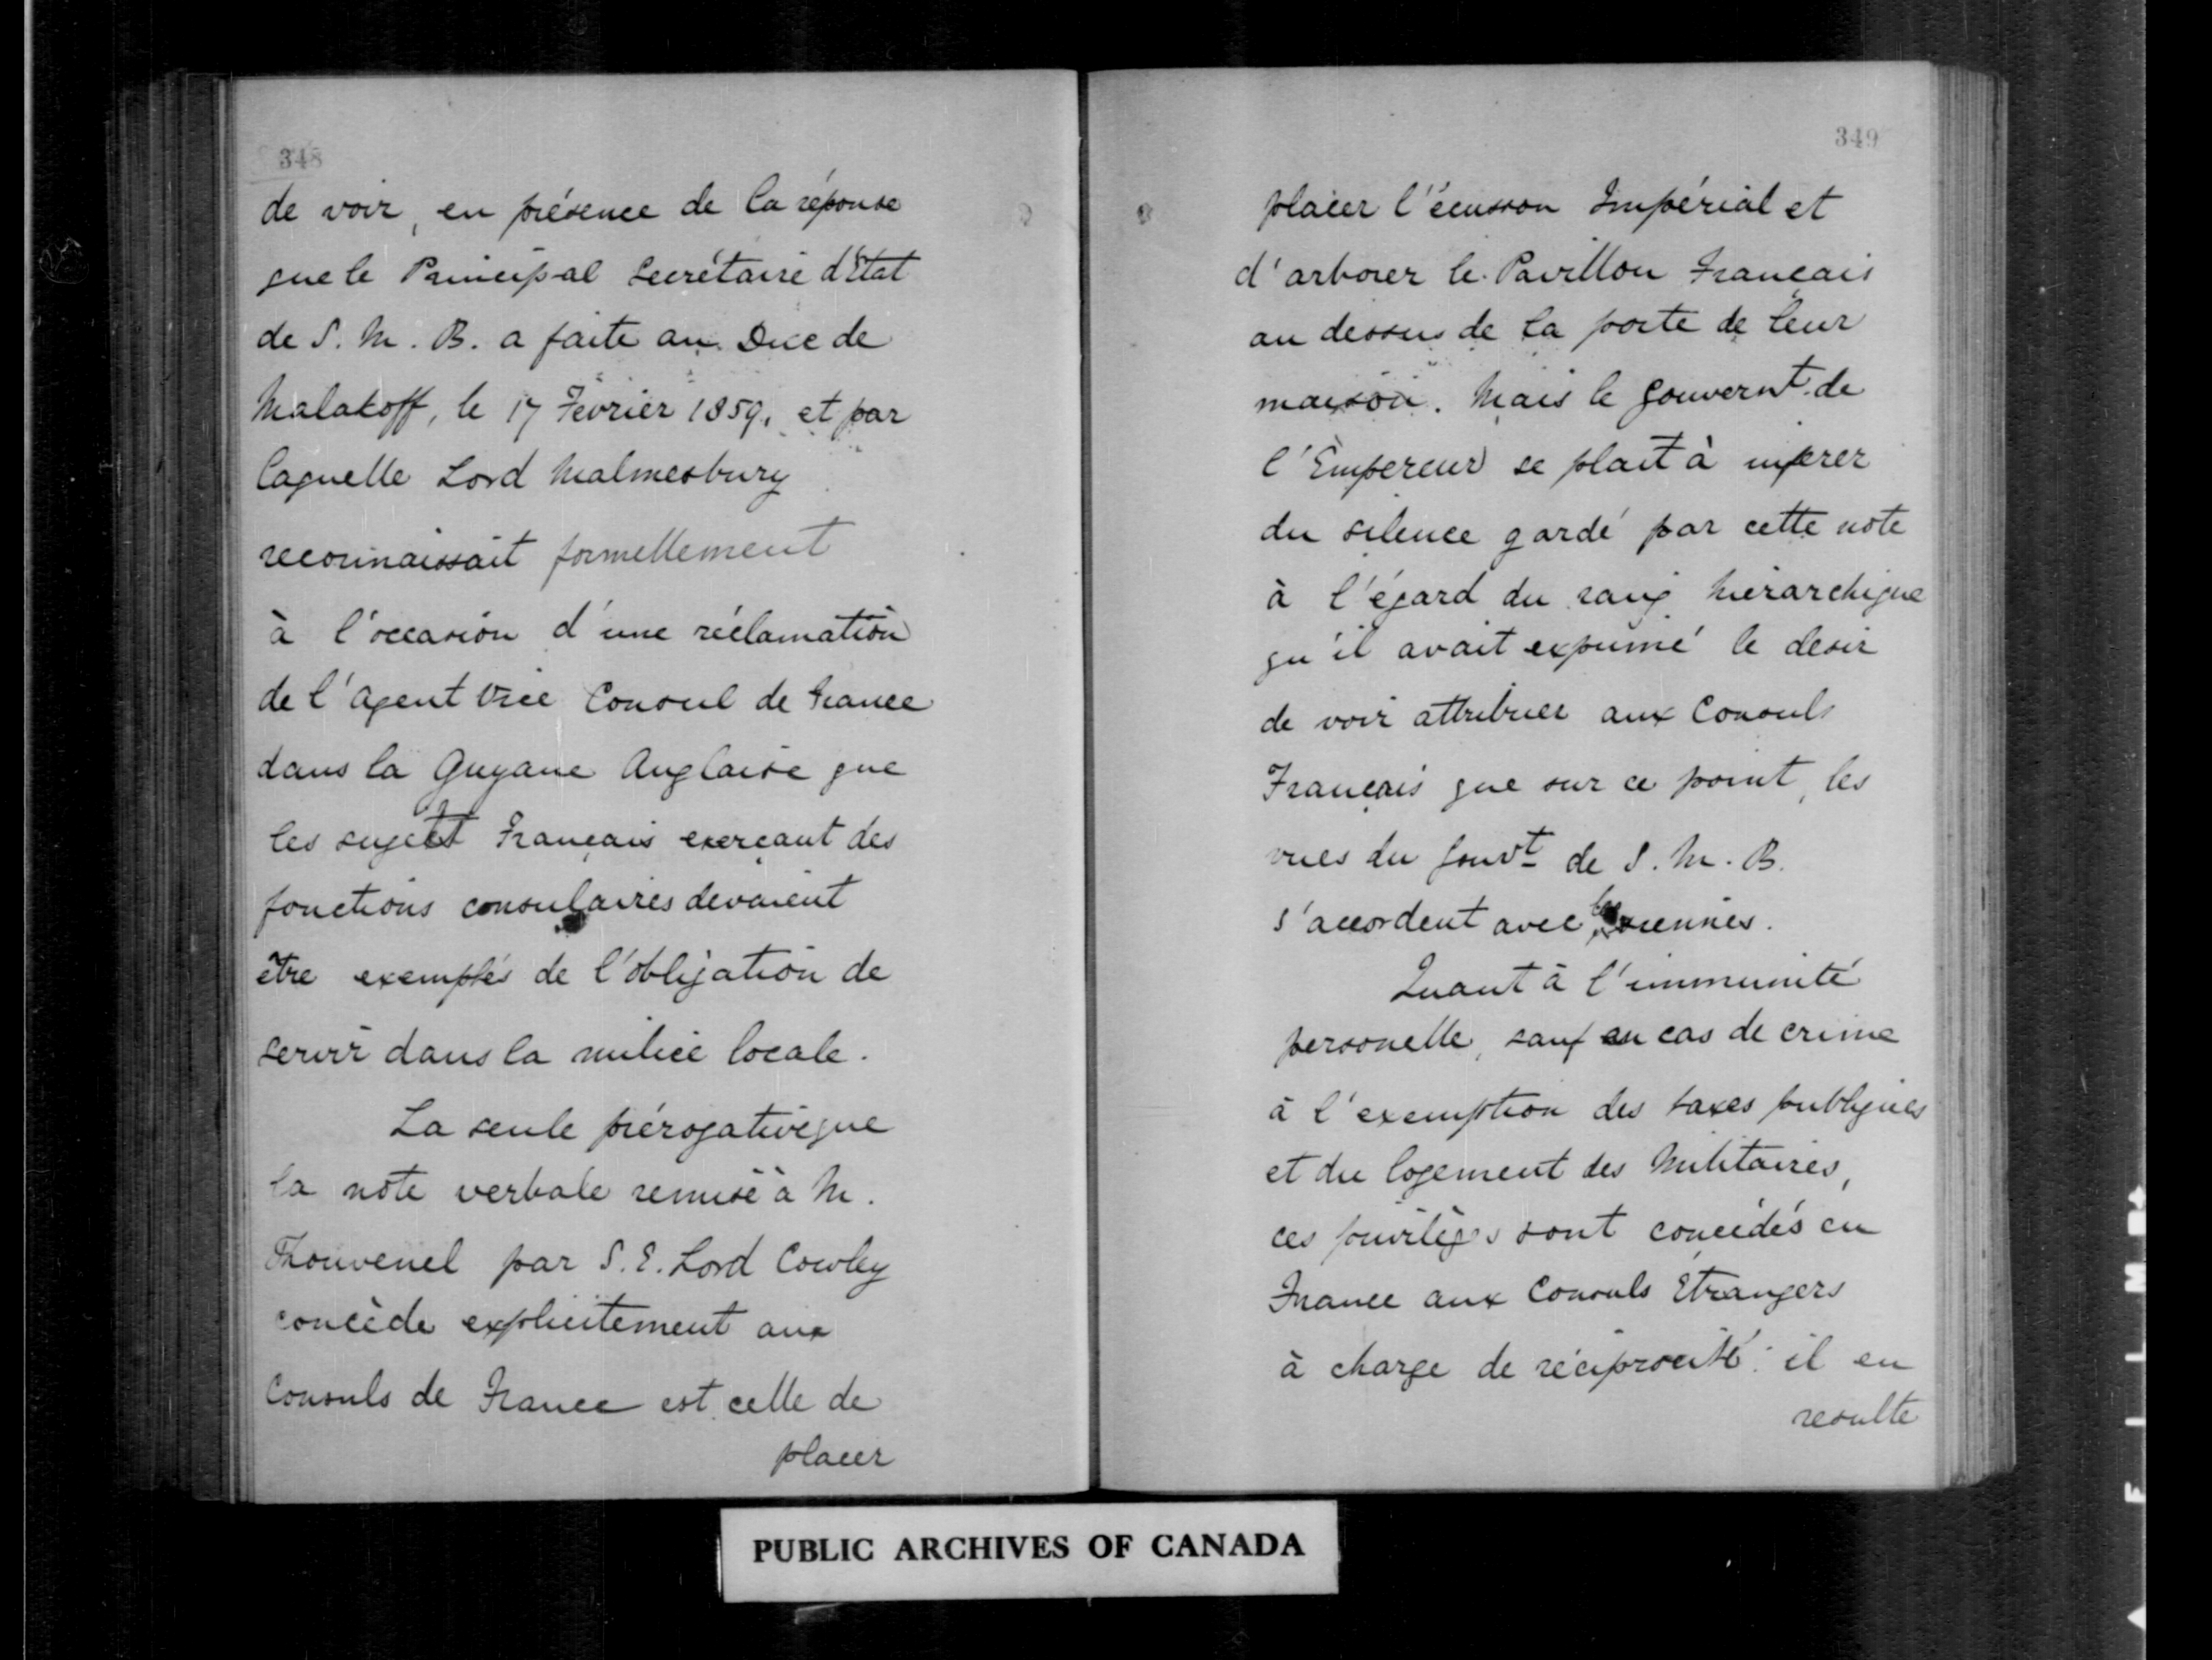 348
de voir, en présence de la réponse
que le Principal Secrétaire d'Etat
de S. M. B. a faite au Duc de
Malakoff, le 17 Fevrier 1859, et par
laquelle Lord Malmesbury
reconnaissait formellement
à l'occasion d'une réclamation
de l'agent vice Consul de France
dans la Guyane Anglaise que
les sujets Français exerçant des
fonctions consulaires devaient
être exemptés de l'obligation de
servir dans la milice locale.
La seule prérogative que
la note verbale remise à M.
Thouvenel par S. E. Lord Cowley
concède explicitement aux
Consuls de France est celle de
placer
349
placer l'écusson Impérial et
d'arborer le Pavillon Français
au dessus de la porte de leur
maison. Mais le Gouvernt de
l'Empereur se plait à inférer
du silence gardé par cette note
à l'égard du rang hiérarchique
qu'il avait exprimé le desir
de voir attribuer aux Consuls
Français que sur ce point, les
vues du Gouvt de S. M. B.
s'accordent avec les siennes.
Quant à l'immunité
personelle, sauf en cas de crime
à l'exemption des taxes publiques
et du logement des Militaires,
ces privilèges sont concédés en
France aux Consuls Etrangers
à charge de réciprocité: il en
resulte
PUBLIC ARCHIVES OF CANADA